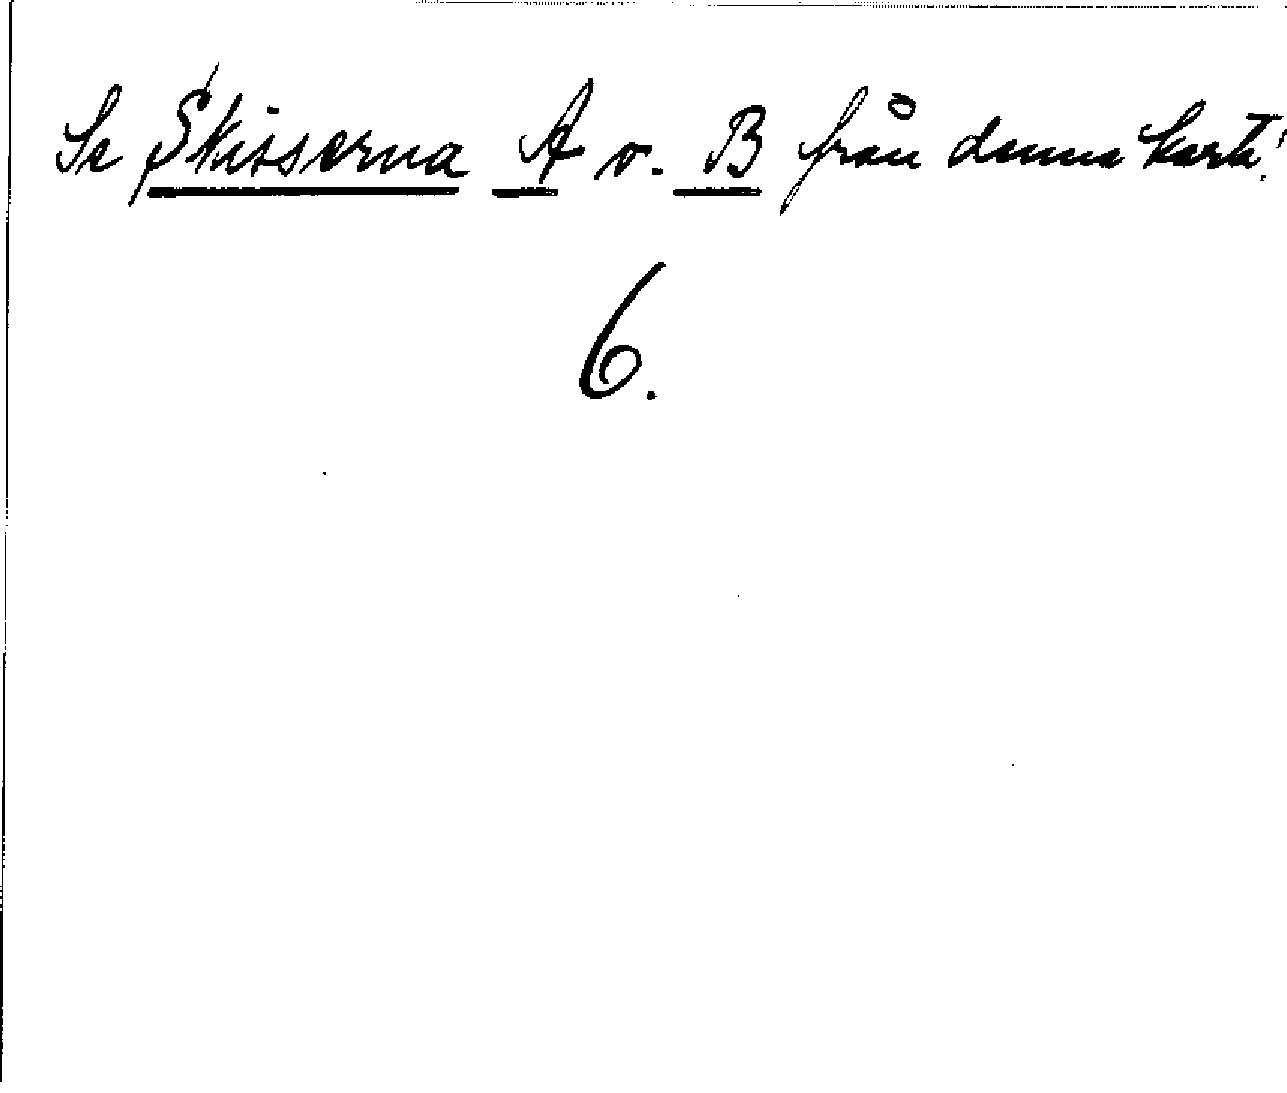 Se Skisserna A o. B från denna karta!
6.